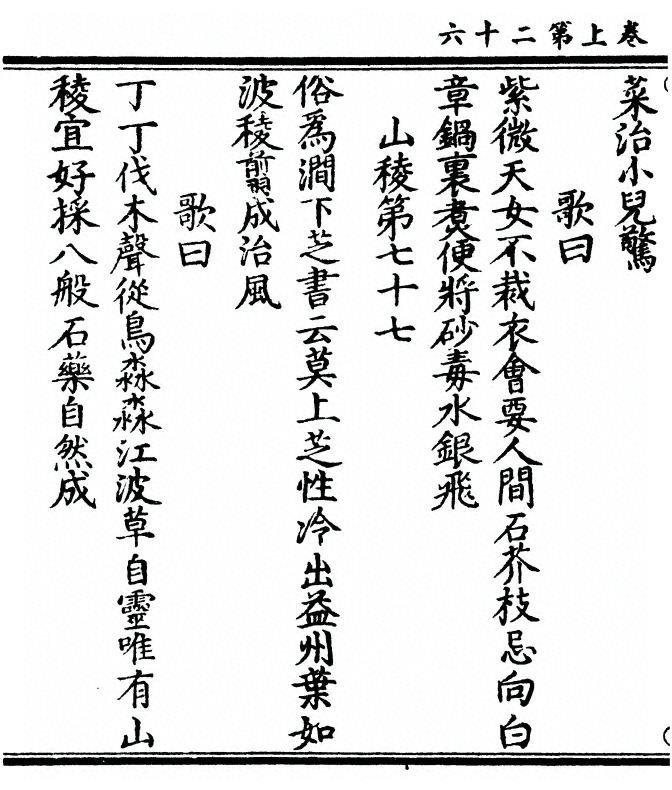 卷上第二十六
菜治小兒驚
歌曰
紫微天女不裁衣會要人間石芥枝忌向白
章鍋裏煑便將砂毒水銀飛
山稜第七十七
俗爲澗下芝書云莫上芝性冷出益州葉如
波稜翦成治風
歌曰
丁丁伐木聲從鳥淼淼江波草自靈唯有山
稜宜好採八般石藥自然成